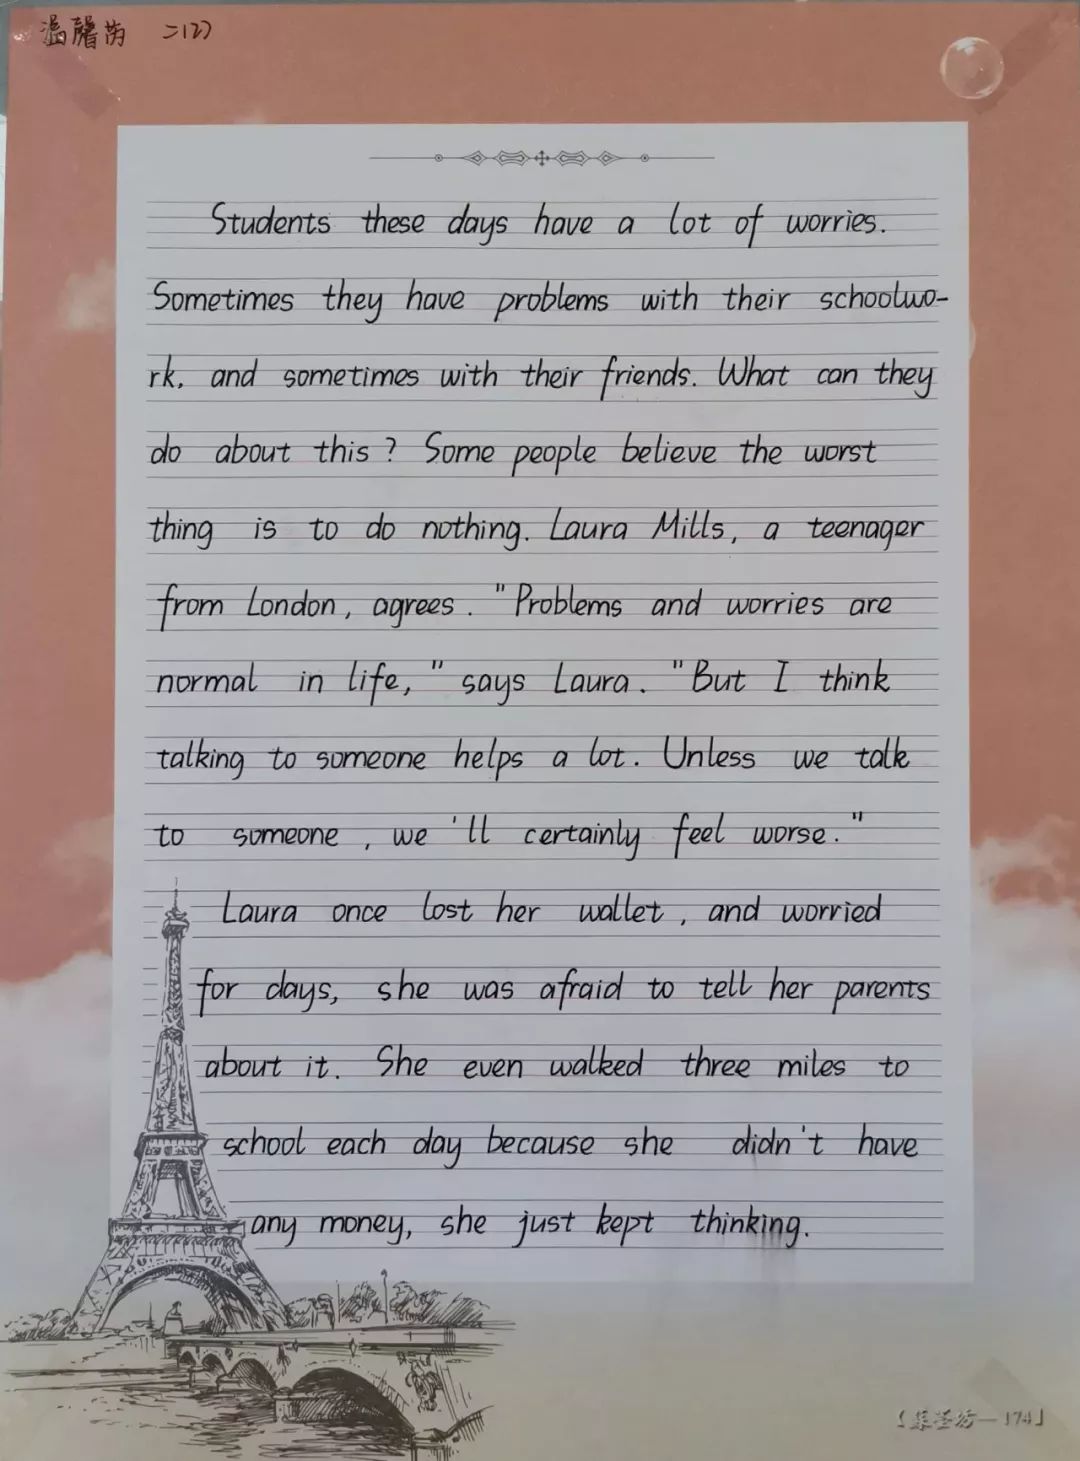 温馨芮 二(2)
Students these days have a lot of worries.
Sometimes they have problems with their schoolwo-
rk, and sometimes with their friends. What can they
do about this? Some people believe the worst
thing is to do nothing. Laura Mills, a teenager
from London, agrees. "Problems and worries are
normal in life," says Laura. "But I think
talking to someone helps a lot. Unless we talk
to someone, we'll certainly feel worse."
Laura once lost her wallet, and worried
for days, she was afraid to tell her parents
about it. She even walked three miles to
school each day because she didn't have
any money, she just kept thinking.
174